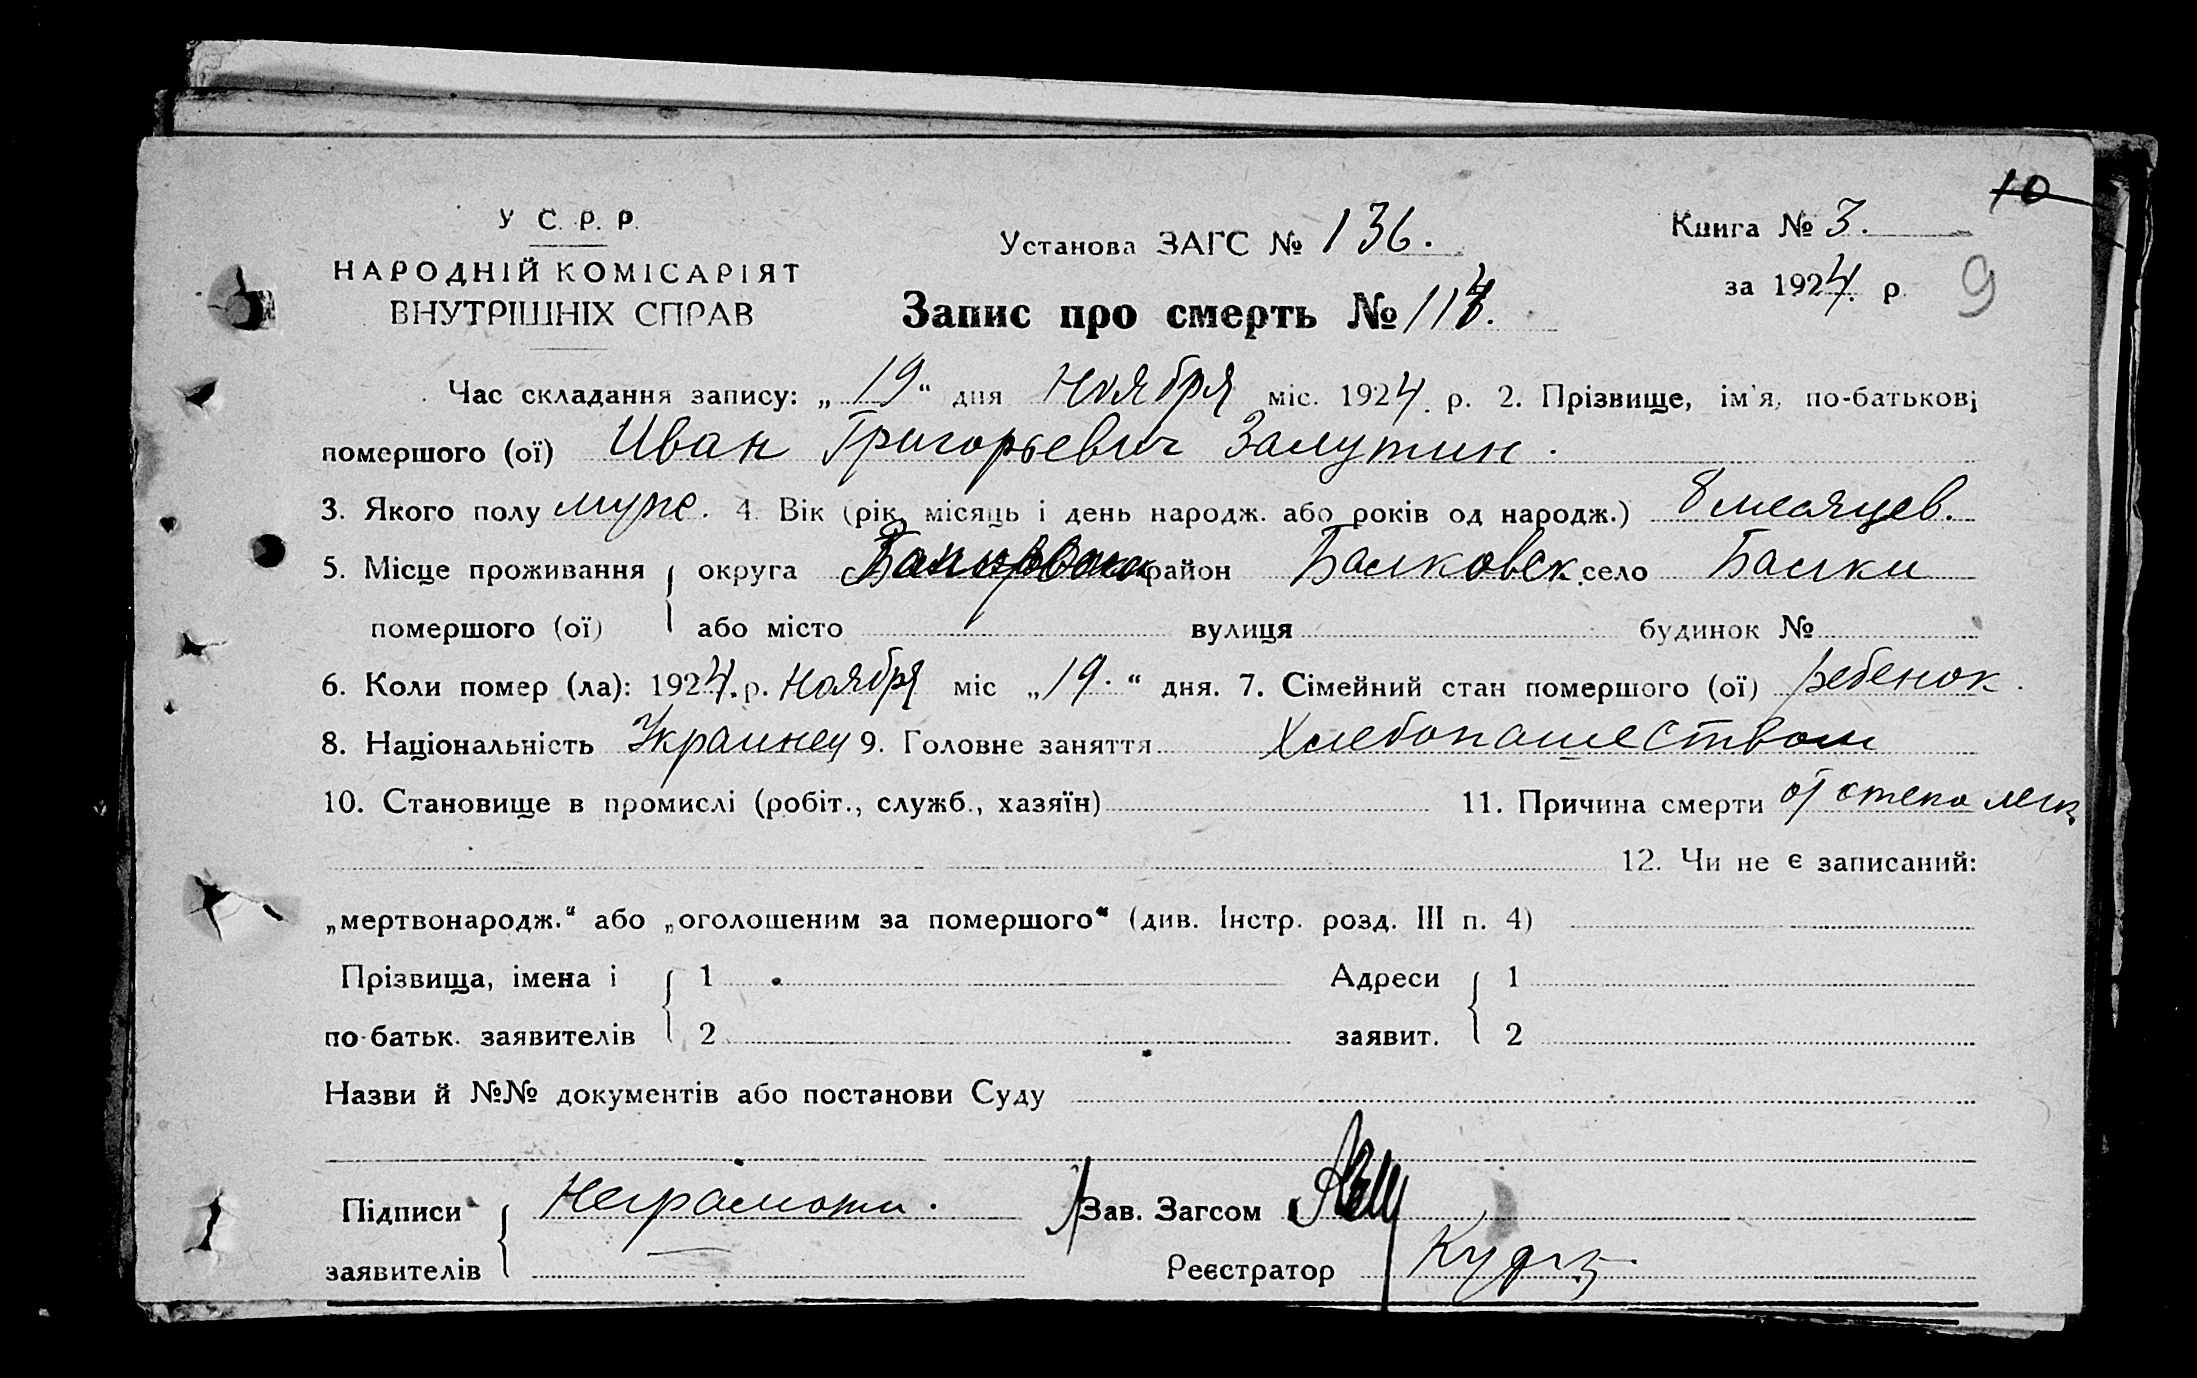 10
У С. Р. Р.
Установа ЗАГС № 136.
Книга № 3.
НАРОДНІЙ КОМІСАРІЯТ
ВНУТРІШНІХ СПРАВ
Запис про смерть № 117.
за 1924. р.
9
Час складання запису: „19“ дня Ноября міс. 1924. р. 2. Прізвище, ім'я, по-батькові
помершого (ої) Иван Григорьевич Залутин.
3. Якого полу муж. 4. Вік (рік, місяць і день народж. або років од народж.) 8 месяцев.
5. Місце проживання округа район Балковск. село Балки
помершого (ої) або місто вулиця будинок №
6. Коли помер (ла): 1924. р. Ноября міс „19.“ дня. 7. Сімейний стан помершого (ої) ребенок.
8. Національність Украинец 9. Головне заняття Хлебопашеством
10. Становище в промислі (робіт., служб., хазяїн) 11. Причина смерти от отека легк.
12. Чи не є записаний:
„мертвонародж.“ або „оголошеним за помершого“ (див. Інстр. розд. III п. 4)
Прізвища, імена і 1 Адреси 1
по-батьк. заявителів 2 заявит. 2
Назви й №№ документів або постанови Суду
Підписи Неграмотн. Зав. Загсом
заявителів Реєстратор